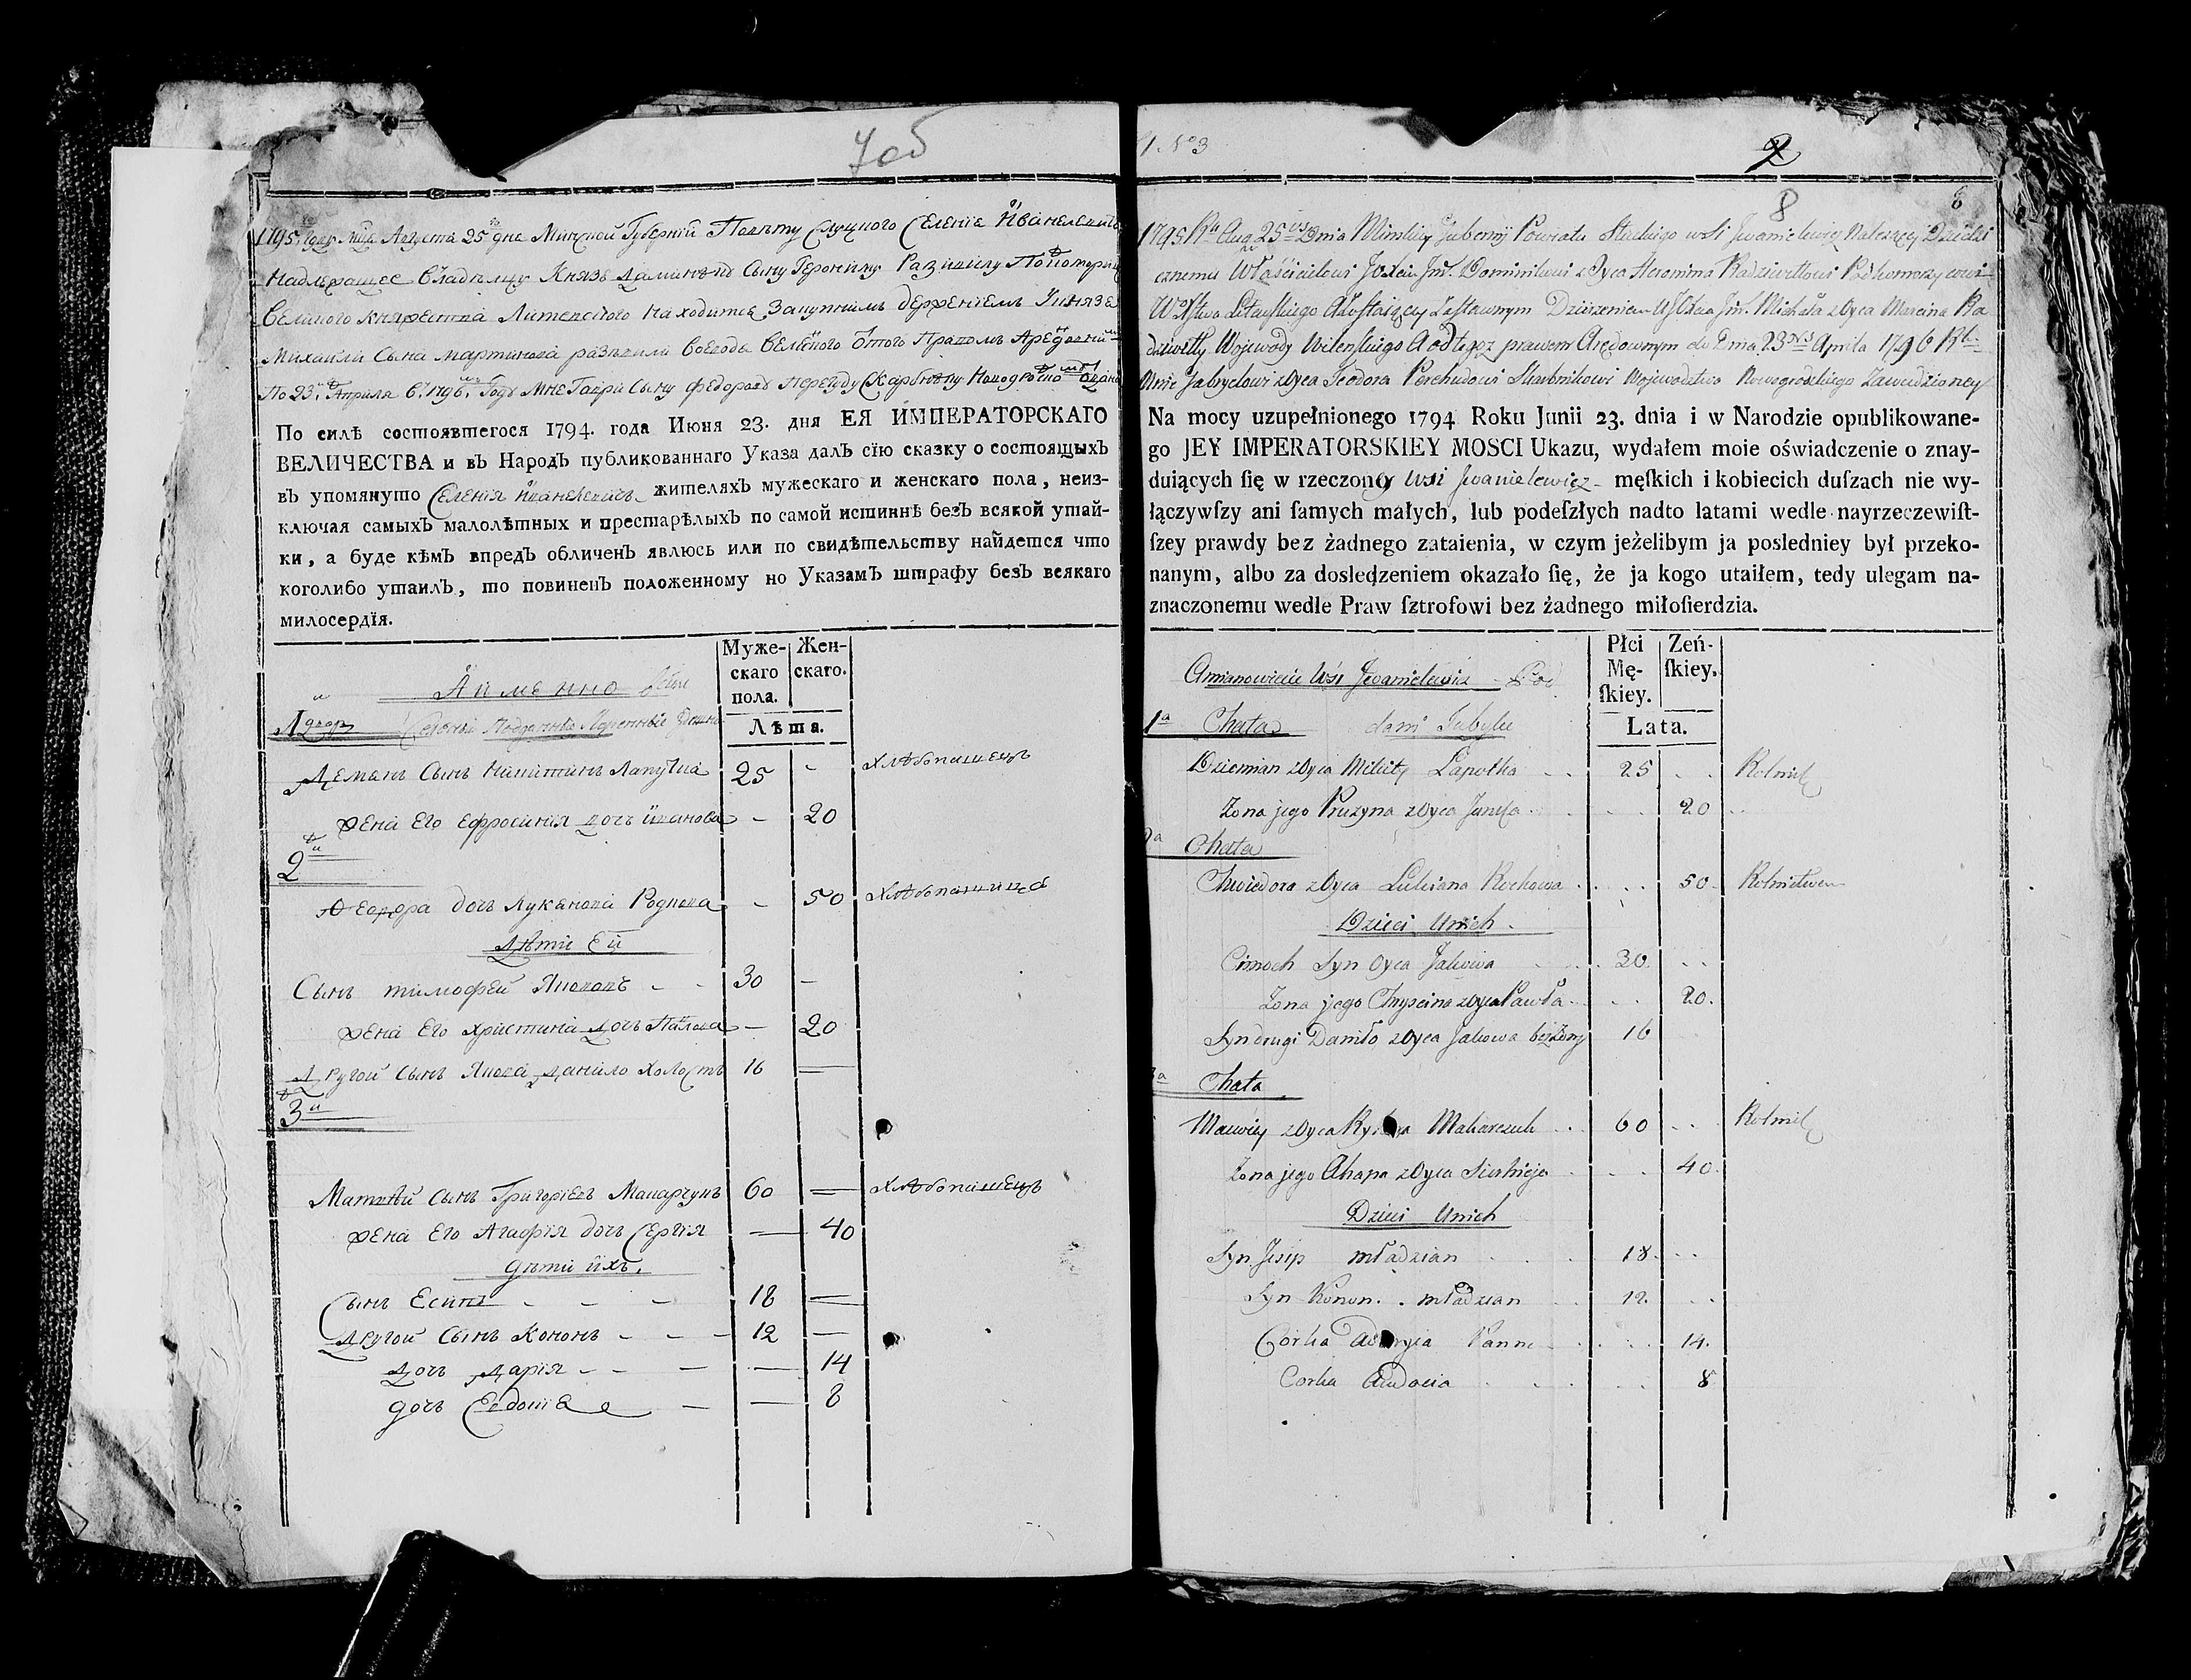 7об
1795 году мца Августа 25 дня Минской Губернїи Повѣту Слуцкого Селенїе Иванелевичъ
Надлежащее Владѣлцу Князь Даминѣку Сыну Геронима
Великого Княжества Литовского находится держенїемъ Князе
Михаила Сына Мартинова воеводи
По 23 Апреля 1796 Году Мне Сыну Федорову
По силѣ состоявтегося 1794. года Июня 23. дня ЕЯ ИМПЕРАТОРСКАГО
ВЕЛИЧЕСТВА и въ Народъ публикованнаго Указа далъ сїю сказку о состоящыхъ
въ упомянуто Селенїя Иванелевичъ жителяхъ мужескаго и женскаго пола, неиз-
ключая самыхъ малолѣтных и престарѣлыхъ по самой истиннѣ безъ всякой утай-
ки, а буде кѣмъ впредъ обличенъ явлюсь или по свидѣтельству найдется что
коголибо утаилъ, то повиненъ положенному но Указамъ штрафу безъ всякаго
милосердїя.
Муже- Жен-
скаго скаго.
пола.
А имѣнно
Лѣта.
Деманъ Сынъ Никитинъ Лапутка 25 - хлѣбопашецъ
жена Его Ефросиния дочъ иванова - 20
2
Феодора дочъ Лукянова - 50
Дѣти Ей
Сынъ тимофей Яковавъ - - 30 -
жена Его христина дочъ Павлова - 20
Другой Сынъ Якова Данило холостъ 16 —
3
Матвѣй сынъ Григорїевъ Макарчукъ 60 — хлѣбопашецъ
жена Его Агафїя дочъ Сергїя — 40
дѣти ихъ.
Сынъ Есипъ - - - 18 —
другой Сынъ Кононъ - - - 12 —
дочъ Дарїя - - - — 14
дочъ - — 8
1. No 3
2
8
1795 Rku Aug 25 Dnia Minskiey Gubernij Powiatu Słuckiego wsi Jwanielewicz Należącey Dziedzi
cznemu Właścicielowi Dominikowi z Oyca Hieronima Radziwiłłowi Podkomorzycowi
Litewskiego Zastawnym Dzierżeniem Michała z Oyca Marcina Ra
dziwiłły Wojewody Wilenskiego A odtąd prawem Arędownym do Dnia 23 Aprila 1796 Rku
Mnie Gabryelowi z Oyca Teodora Skarbnikowi Wojewodztwa Nowogrodzkiego Zawiedzioney
Na mocy uzupełnionego 1794 Roku Junii 23. dnia i w Narodzie opublikowane-
go JEY IMPERATORSKIEY MOSCI Ukazu, wydałem moie oświadczenie o znay-
duiących ſię w rzeczoney wsi Jwanielewicz - męſkich i kobiecich duſzach nie wy-
łączywſzy ani ſamych małych, lub podeſzłych nadto latami wedle nayrzeczewiſt-
ſzey prawdy bez żadnego zataienia, w czym jeżelibym ja posledniey był przeko-
nanym, albo za dosledzeniem okazało ſię, że ja kogo utaiłem, tedy ulegam na-
znaczonemu wedle Praw ſztrofowi bez żadnego miłoſierdzia.
Płci Zeń-
Mę- ſkiey.
ſkiey.
Amianowicie Wsi Jwanielewicz
1a Chata
Lata.
Dziemian z Oyca Mikity Łaputka . . 25 . . Rolnik
Zona jego Pruzyna z Oyca Jwana . . . 20 . .
2a Chata
Chwiedora z Oyca Lukiana . . . 50.
Dzieci Unich.
Cimoch Syn Oyca Jakowa . . 30. . .
Zona jego Chryscina z Oyca Pawła . . . 20.
Syn drugi Daniło z Oyca Jakowa bezżony 16
3a Chata
Macwiey z Oyca Makarczuk . . 60 . . Rolnik
Zona jego Ahapa z Oyca Sierhieja . . . 40.
Dzieci Unich
Syn Jesip młodzian . . . 18. . .
Syn Konon . . młodzian . . 12. . .
Corka Panna . . . . 14.
Corka Audocia . . . . 8